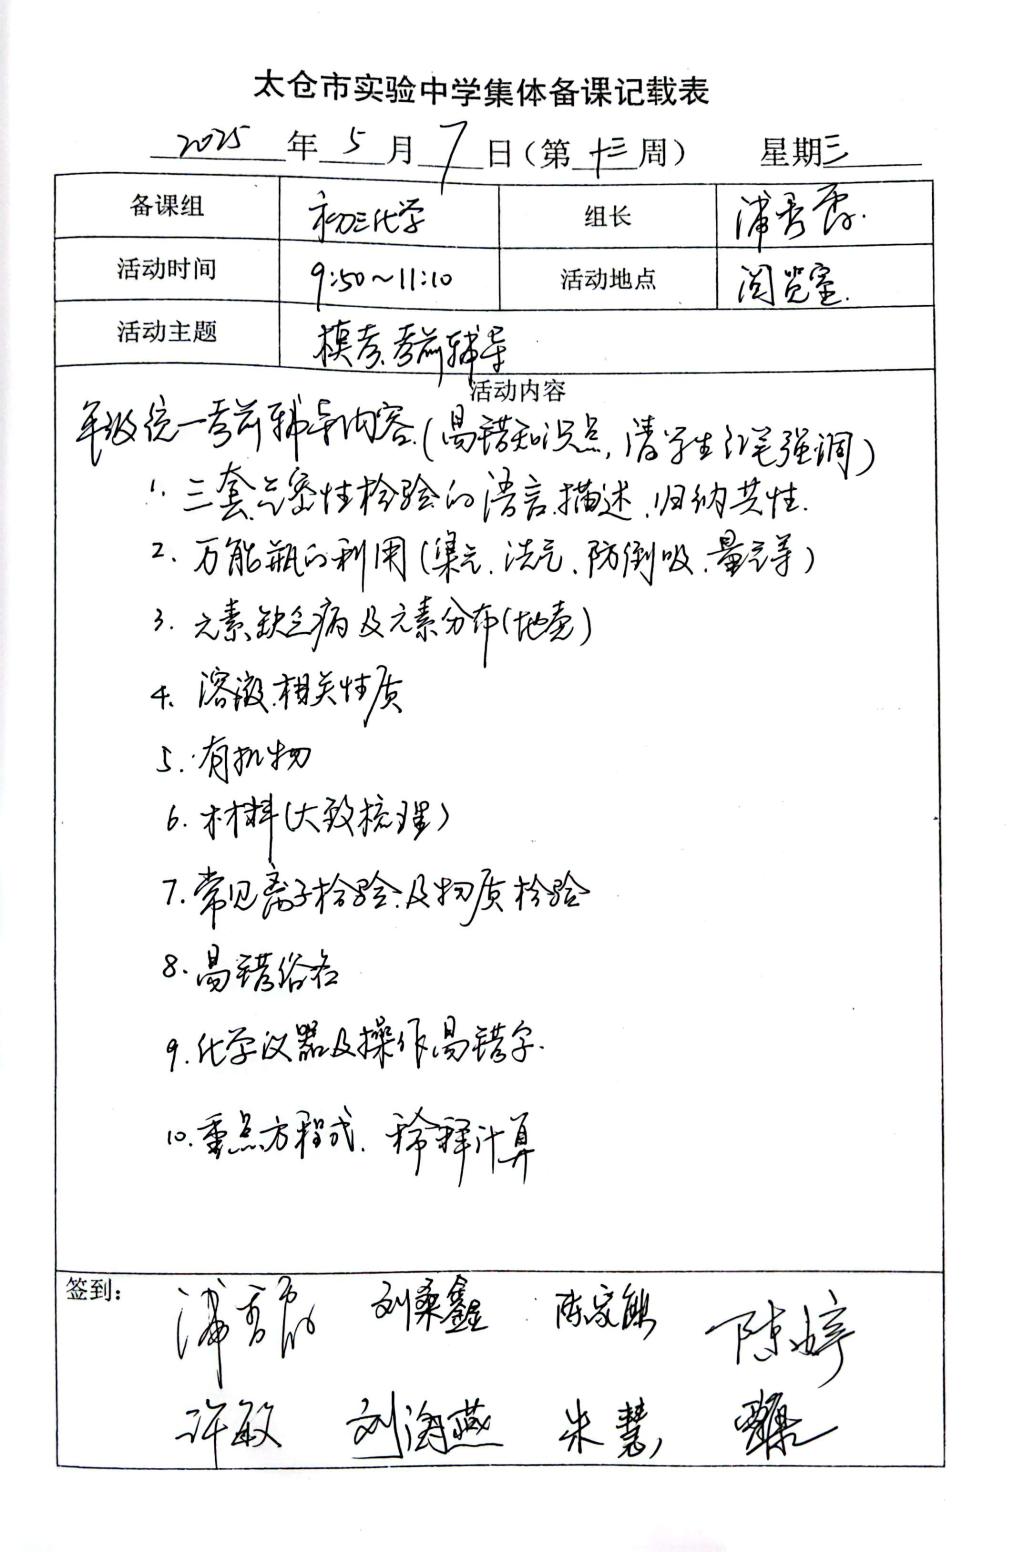 太仓市实验中学集体备课记载表
2025年5月7日（第十三周） 星期三
备课组 初三化学 组长 浦秀
活动时间 9:50~11:10 活动地点 阅览室.
活动主题 模考考前辅导
活动内容
年级统一考前辅导内容.(易错知识点,请学生记笔强调)
1. 三套气密性检验的语言描述,归纳共性.
2. 万能瓶的利用(集气.洗气.防倒吸.量气等)
3. 元素缺乏病及元素分布(地壳)
4. 溶液相关性质
5. 有机物
6. 材料(大致梳理)
7. 常见离子检验及物质检验
8. 易错俗名
9. 化学仪器及操作易错字.
10. 重点方程式. 稀释计算
签到： 浦秀 刘桑鑫 陈家麒 陈婷
许敏 刘海燕 朱慧